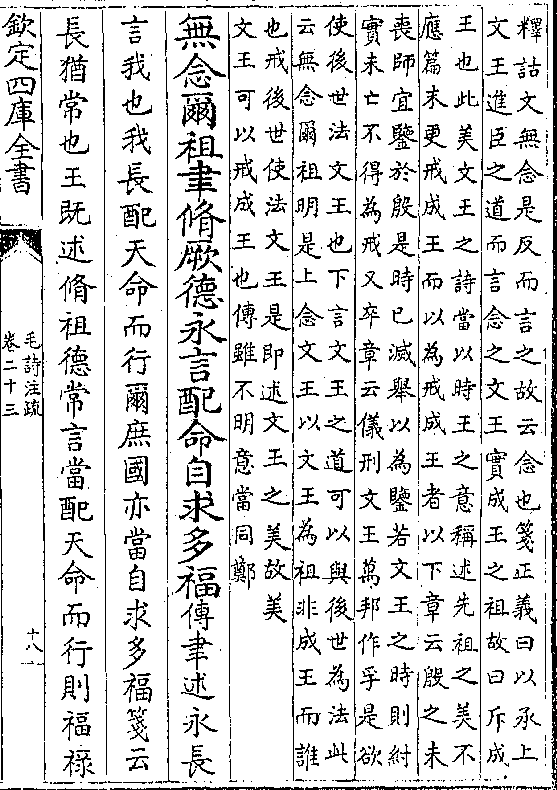 釋詁文無念是反而言之故云念也箋正義曰以承上
文王進臣之道而言念之文王實成王之祖故曰斥成
王也此美文王之詩當以時王之意稱述先祖之美不
應篇末更戒成王而以為戒成王者以下章云殷之未
喪師宜鑒於殷是時已滅舉以為鑒若文王之時則紂
實未亡不得為戒又卒章云儀刑文王萬邦作孚是欲
使後世法文王也下言文王之道可以與後世為法此
云無念爾祖明是上念文王以文王為祖非成王而誰
也戒後世使法文王是即述文王之美故美
文王可以戒成王也傳雖不明意當同鄭
無念爾祖聿脩厥德永言配命自求多福傳聿述永長
言我也我長配天命而行爾庶國亦當自求多福箋云
長猶常也王既述脩祖德常言當配天命而行則福祿
欽定四庫全書
毛詩注疏
卷二十三
十八